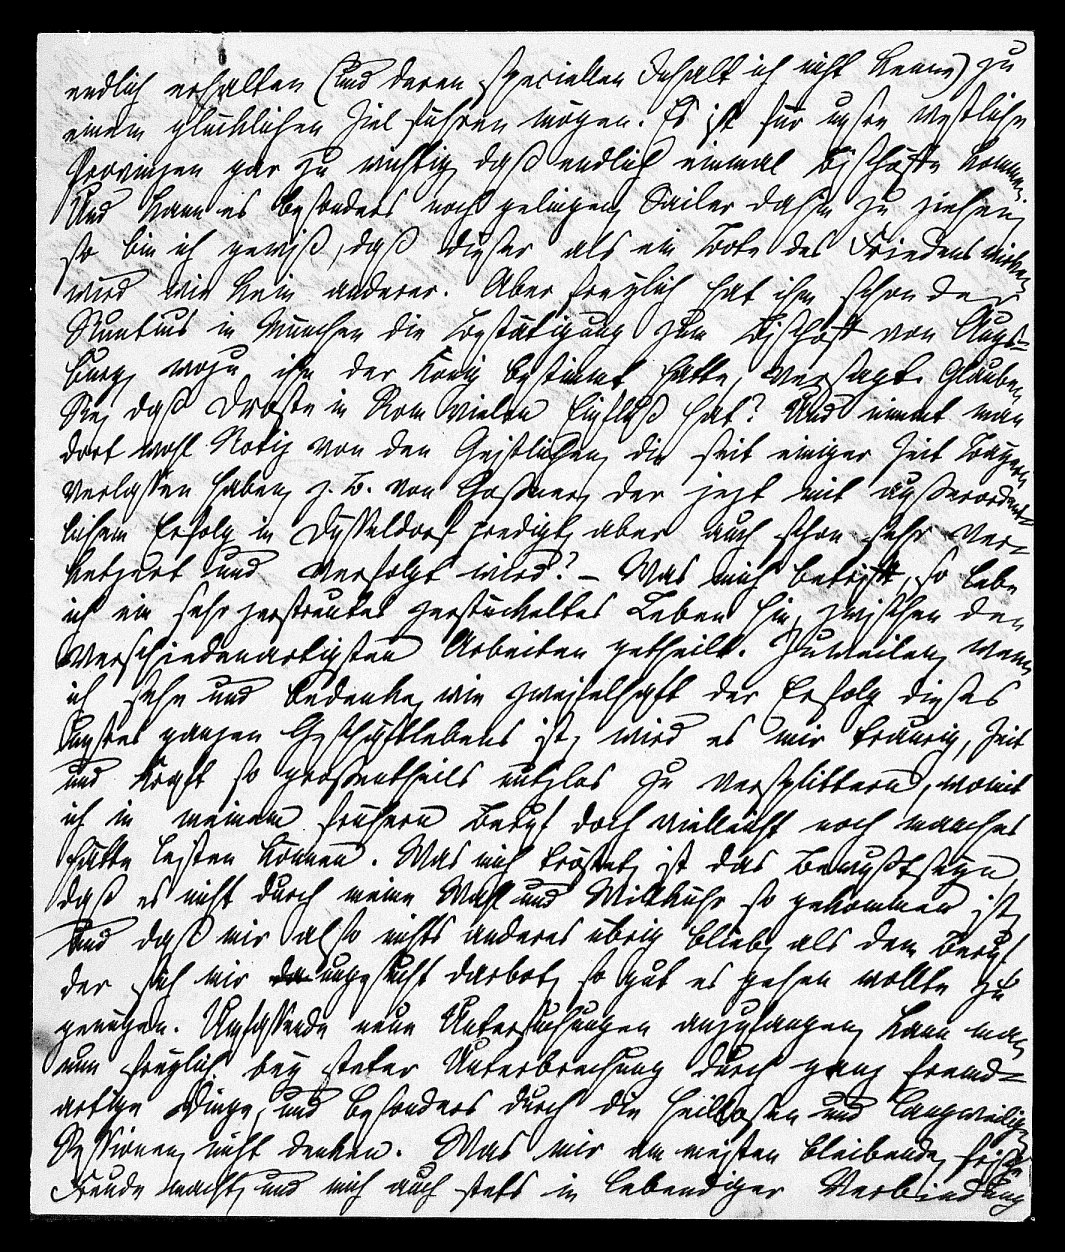 endlich erhalten (und deren speciellen Inhalt ich nicht kenne) zu
einem glücklichen Ziel führen mögen. Es ist für unsre westlichen
Provinzen gar zu wichtig, daß endlich einmal Bischöffe kommen,
Und kann es besonders noch gelingen, Sailer dahin zu ziehen,
so bin ich gewiß, daß dieser als ein Bote des Friedens wirken
wird wie kein anderer. Aber freylich hat ihm schon der
Nuntius in München die Bestätigung zum Bischoff von Augs-
burg, wozu ihn der König bestimmt hatte, versagt. Glauben
Sie, daß Droste in Rom vielen Einfluß hat? Und nimmt man
dort wohl Notiz von den Geistlichen, die seit einiger Zeit Bayern
verlassen haben, z. B. von Goßner, der jezt mit ausserordent-
lichem Erfolg in Düsseldorf predigt, aber auch schon sehr ver-
ketzert und verfolgt wird? – Was mich betrifft, so lebe
ich ein sehr zerstreutes zerstückeltes Leben hin, zwischen den
verschiedenartigsten Arbeiten getheilt. Zuweilen, wenn
ich sehe und bedenke, wie zweifelhaft der Erfolg dieses
unsres ganzen Geschäftslebens ist, wird es mir traurig, Zeit
und Kraft so großentheils nutzlos zu versplittern, womit
ich in meinem frühern Beruf doch vielleicht noch manches
hätte leisten können. Was mich tröstet, ist das Bewußtseyn,
daß es nicht durch meine Wahl und Willkühr so gekommen ist,
und daß mir also nichts anderes übrig blieb, als dem Beruf
der sich mir ungesucht darbot, so gut es gehen wollte zu
genügen. Umfassende neue Untersuchungen anzufangen, kann man
nun freylich bey steter Unterbrechung durch ganz fremd-
artige Dinge, und besonders durch die heillosen und langweiligen
Sessionen, nicht denken. Was mir am meisten bleibende, frische
Freude macht, und mich auch stets in lebendiger Verbindung